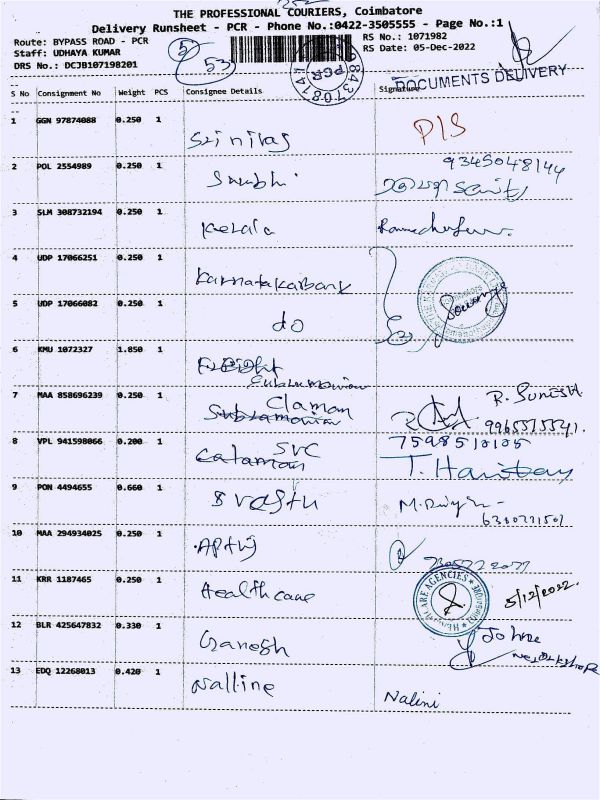 THE PROFESSIONAL COURIERS, Coimbatore
Delivery Runsheet - PCR - Phone No.:0422-3505555 - Page No.:1
Route: BYPASS ROAD - PCR
Staff: UDHAYA KUMAR
DRS No.: DCJB107198201
5
53
PCR
RS No.: 1071982
RS Date: 05-Dec-2022
DOCUMENTS DELIVERY
S No Consignment No Weight PCS Consignee Details Signature
1 GGN 97874088 0.250 1 Srinivas P/S
2 POL 2554989 0.250 1 9345048144
3 SLM 308732194 0.250 1 Kerala
4 UDP 17066251 0.250 1 Karnatakabank
5 UDP 17066082 0.250 1 do
6 KMU 1072327 1.850 1
Subramanian
7 MAA 858696239 0.250 1 Claman R. SURESH
Subramanian 9965515541.
8 VPL 941598066 0.200 1 SVC 7598510105
9 PON 4494655 0.660 1
6380771501
10 MAA 294934025 0.250 1
11 KRR 1187465 0.250 1 Healthcare 5/12/2022
HEALTHCARE AGENCIES
12 BLR 425647832 0.330 1 Ganesh
13 EDQ 12268013 0.420 1 Nalline Nalini